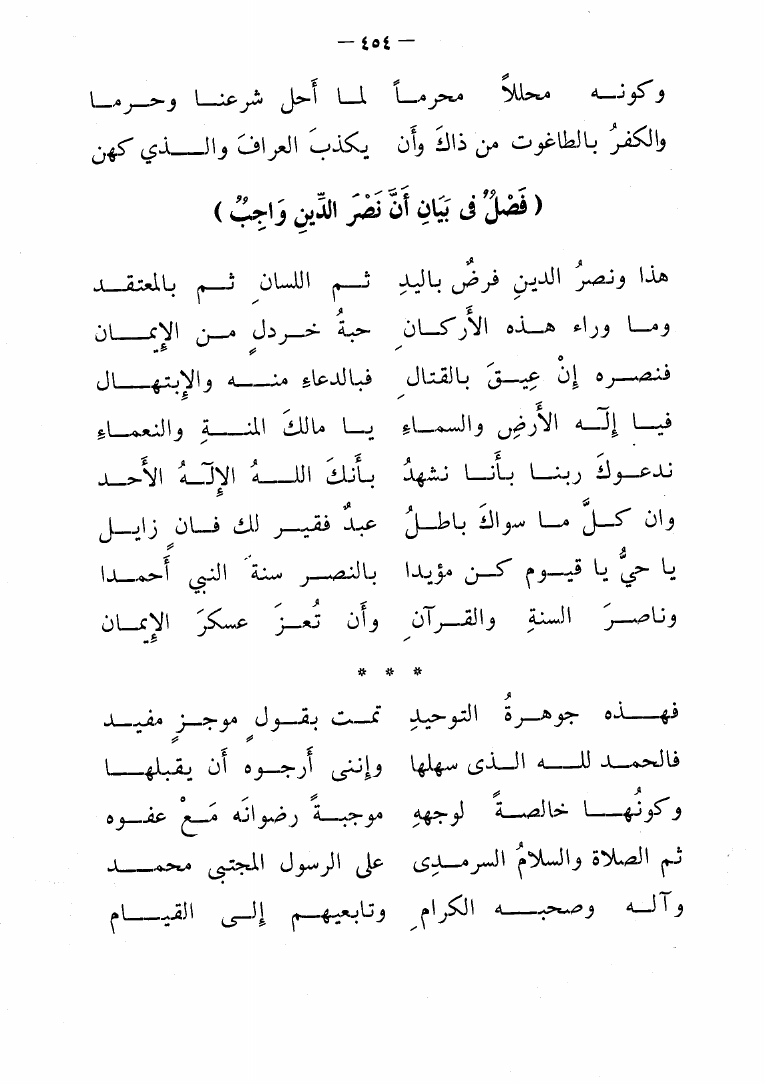 — ٤٥٤ —
وكونـــه محللاً محرماً لمـا أَحل شرعنـا وحـرمـا
والكفرُ بالطاغوت من ذاكَ وأن يكذبَ العرافَ والــذي كهن
( فَصْلٌ فى بَيَانِ أَنَّ نَصْرَ الدِّينِ وَاجِبٌ )
هذا ونصرُ الدينِ فرضٌ باليدِ ثــم اللسانِ ثــم بالمعتقــد
ومـا وراء هـذه الأَركـانِ حبةُ خـردلٍ مـن الإِيمـان
فنصـره إنْ عِيـقَ بالقتالِ فبالدعاء منــه والإِبتهـال
فيـا إلَـه الأَرضِ والسمـاءِ يـا مالكَ المنــةِ والنعمـاءِ
ندعـوكَ ربنـا بأَنـا نشهدُ بأَنكَ اللـهُ الإِلَـهُ الأَحـد
وان كـلَّ مـا سواكَ باطلُ عبدٌ فقيـر لك فـانٍ زايـل
يا حيُّ يا قيـوم كـن مؤيدا بالنصـر سنةَ النبي أَحمـدا
وناصـرَ السنةِ والقـرآنِ وأَن تُعـزَ عسكرَ الإِيمـان
* * *
فهـذه جوهـرةُ التوحيدِ تمـت بقـولٍ موجـزٍ مفيـد
فالحمـد للـه الـذى سهلها وإننى أَرجـوه أَن يقبلهـا
وكونُهـا خالصـةً لوجههِ موجبـةً رضوانَه مَـعْ عفـوه
ثم الصلاة والسلامُ السرمـدِى على الرسول المجتبى محمــد
وآلـه وصحبــه الكرامِ وتابعيهـم إلـى القيــام